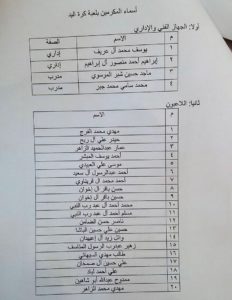 أسماء المكرمين بلعبة كرة اليد
أولا: الجهاز الفني والإداري
م الاسم الصفة
١ يوسف محمد آل عريف إداري
٢ إبراهيم أحمد منصور آل إبراهيم إداري
٣ ماجد حسين شبر الموسوي مدرب
٤ محمد سامي محمد جبر مدرب
ثانيا: اللاعبون
م الاسم
١ مهدي محمد الفرج
٢ حيدر علي آل ربح
٣ عمار عبدالحميد الزاهر
٤ أحمد يوسف المبشر
٥ موسى علي العبيدي
٦ أحمد عبدالرسول آل سعيد
٧ أحمد محمد آل
٨ حسن باقر آل إخوان
٩ حسين باقر آل إخوان
١٠ محمد أحمد آل عبد رب النبي
١١ مسلم أحمد آل عبد رب النبي
١٢ ناصر حسن
١٣ حسين علي حسين
١٤ وائل زيد آل
١٥ زهير عبدرب الرسول
١٦ طالب مهدي السيهاتي
١٧ علي حسين آل
١٨ علي أحمد
١٩ ممدوح عبدالله أبو شاهين
٢٠ مهدي محمد الزاهر